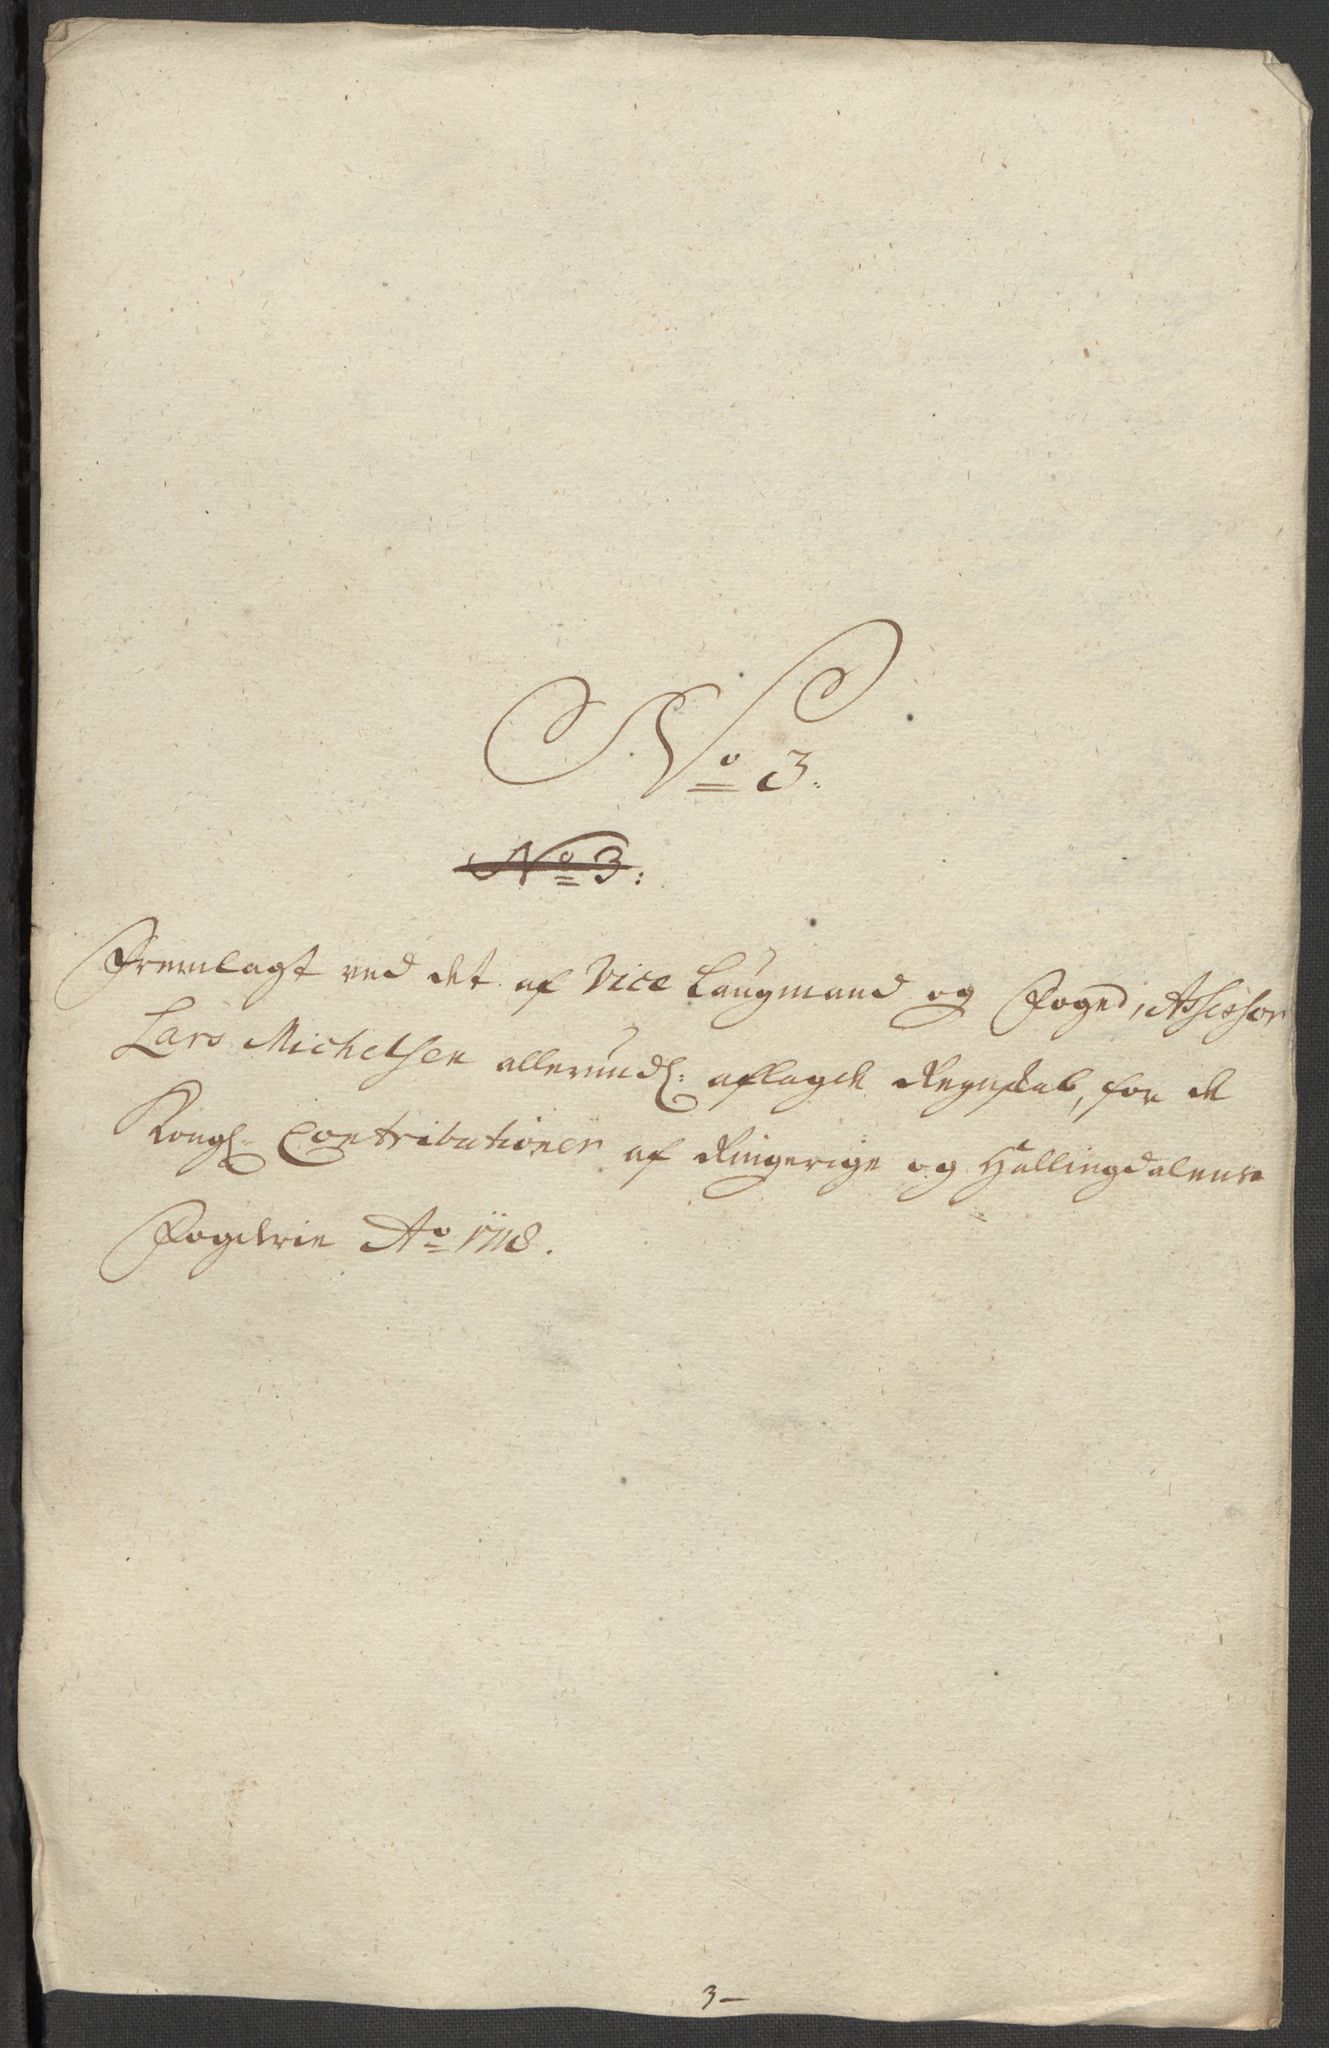 No 3.
No 3:
Fremlagt ved det af Vice Laugmand og Foged, Assessor
Lars Michelsen allerund: aflagde Regnskab, for de
Kongl: Contributioner af Ringerige og Hallingdalens
Fogderie Ao 1718.
3